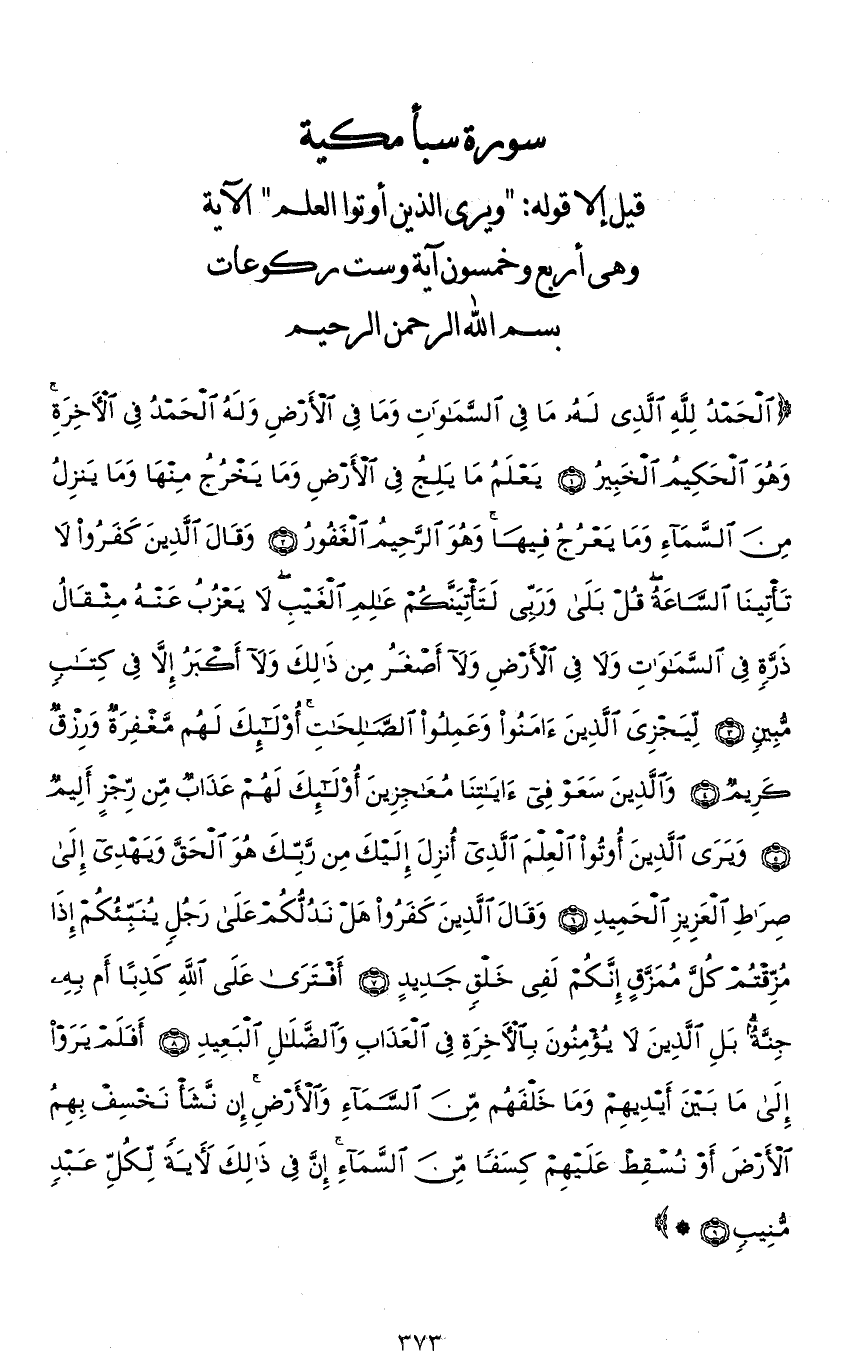 سورة سبأ مكية
قيل إلا قوله: "ويرى الذين أوتوا العلم" الآية
وهى أربع وخمسون آية وست ركوعات
بسم الله الرحمن الرحيم
﴿ٱلْحَمْدُ لِلَّهِ ٱلَّذِى لَهُۥ مَا فِى ٱلسَّمَٰوَٰتِ وَمَا فِى ٱلْأَرْضِ وَلَهُ ٱلْحَمْدُ فِى ٱلْأَخِرَةِ ۚ
وَهُوَ ٱلْحَكِيمُ ٱلْخَبِيرُ ۝١ يَعْلَمُ مَا يَلِجُ فِى ٱلْأَرْضِ وَمَا يَخْرُجُ مِنْهَا وَمَا يَنزِلُ
مِنَ ٱلسَّمَآءِ وَمَا يَعْرُجُ فِيهَا ۚ وَهُوَ ٱلرَّحِيمُ ٱلْغَفُورُ ۝٢ وَقَالَ ٱلَّذِينَ كَفَرُوا۟ لَا
تَأْتِينَا ٱلسَّاعَةُ ۖ قُلْ بَلَىٰ وَرَبِّى لَتَأْتِيَنَّكُمْ عَٰلِمِ ٱلْغَيْبِ ۖ لَا يَعْزُبُ عَنْهُ مِثْقَالُ
ذَرَّةٍ فِى ٱلسَّمَٰوَٰتِ وَلَا فِى ٱلْأَرْضِ وَلَآ أَصْغَرُ مِن ذَٰلِكَ وَلَآ أَكْبَرُ إِلَّا فِى كِتَٰبٍ
مُّبِينٍ ۝٣ لِّيَجْزِىَ ٱلَّذِينَ ءَامَنُوا۟ وَعَمِلُوا۟ ٱلصَّٰلِحَٰتِ ۚ أُو۟لَٰٓئِكَ لَهُم مَّغْفِرَةٌ وَرِزْقٌ
كَرِيمٌ ۝٤ وَٱلَّذِينَ سَعَوْ فِىٓ ءَايَٰتِنَا مُعَٰجِزِينَ أُو۟لَٰٓئِكَ لَهُمْ عَذَابٌ مِّن رِّجْزٍ أَلِيمٌ
۝٥ وَيَرَى ٱلَّذِينَ أُوتُوا۟ ٱلْعِلْمَ ٱلَّذِىٓ أُنزِلَ إِلَيْكَ مِن رَّبِّكَ هُوَ ٱلْحَقَّ وَيَهْدِىٓ إِلَىٰ
صِرَٰطِ ٱلْعَزِيزِ ٱلْحَمِيدِ ۝٦ وَقَالَ ٱلَّذِينَ كَفَرُوا۟ هَلْ نَدُلُّكُمْ عَلَىٰ رَجُلٍ يُنَبِّئُكُمْ إِذَا
مُزِّقْتُمْ كُلَّ مُمَزَّقٍ إِنَّكُمْ لَفِى خَلْقٍ جَدِيدٍ ۝٧ أَفْتَرَىٰ عَلَى ٱللَّهِ كَذِبًا أَم بِهِۦ
جِنَّةٌۢ ۗ بَلِ ٱلَّذِينَ لَا يُؤْمِنُونَ بِٱلْأَخِرَةِ فِى ٱلْعَذَابِ وَٱلضَّلَٰلِ ٱلْبَعِيدِ ۝٨ أَفَلَمْ يَرَوْا۟
إِلَىٰ مَا بَيْنَ أَيْدِيهِمْ وَمَا خَلْفَهُم مِّنَ ٱلسَّمَآءِ وَٱلْأَرْضِ ۚ إِن نَّشَأْ نَخْسِفْ بِهِمُ
ٱلْأَرْضَ أَوْ نُسْقِطْ عَلَيْهِمْ كِسَفًا مِّنَ ٱلسَّمَآءِ ۚ إِنَّ فِى ذَٰلِكَ لَأَيَةً لِّكُلِّ عَبْدٍ
مُّنِيبٍ ۝٩ * ﴾
٣٧٣